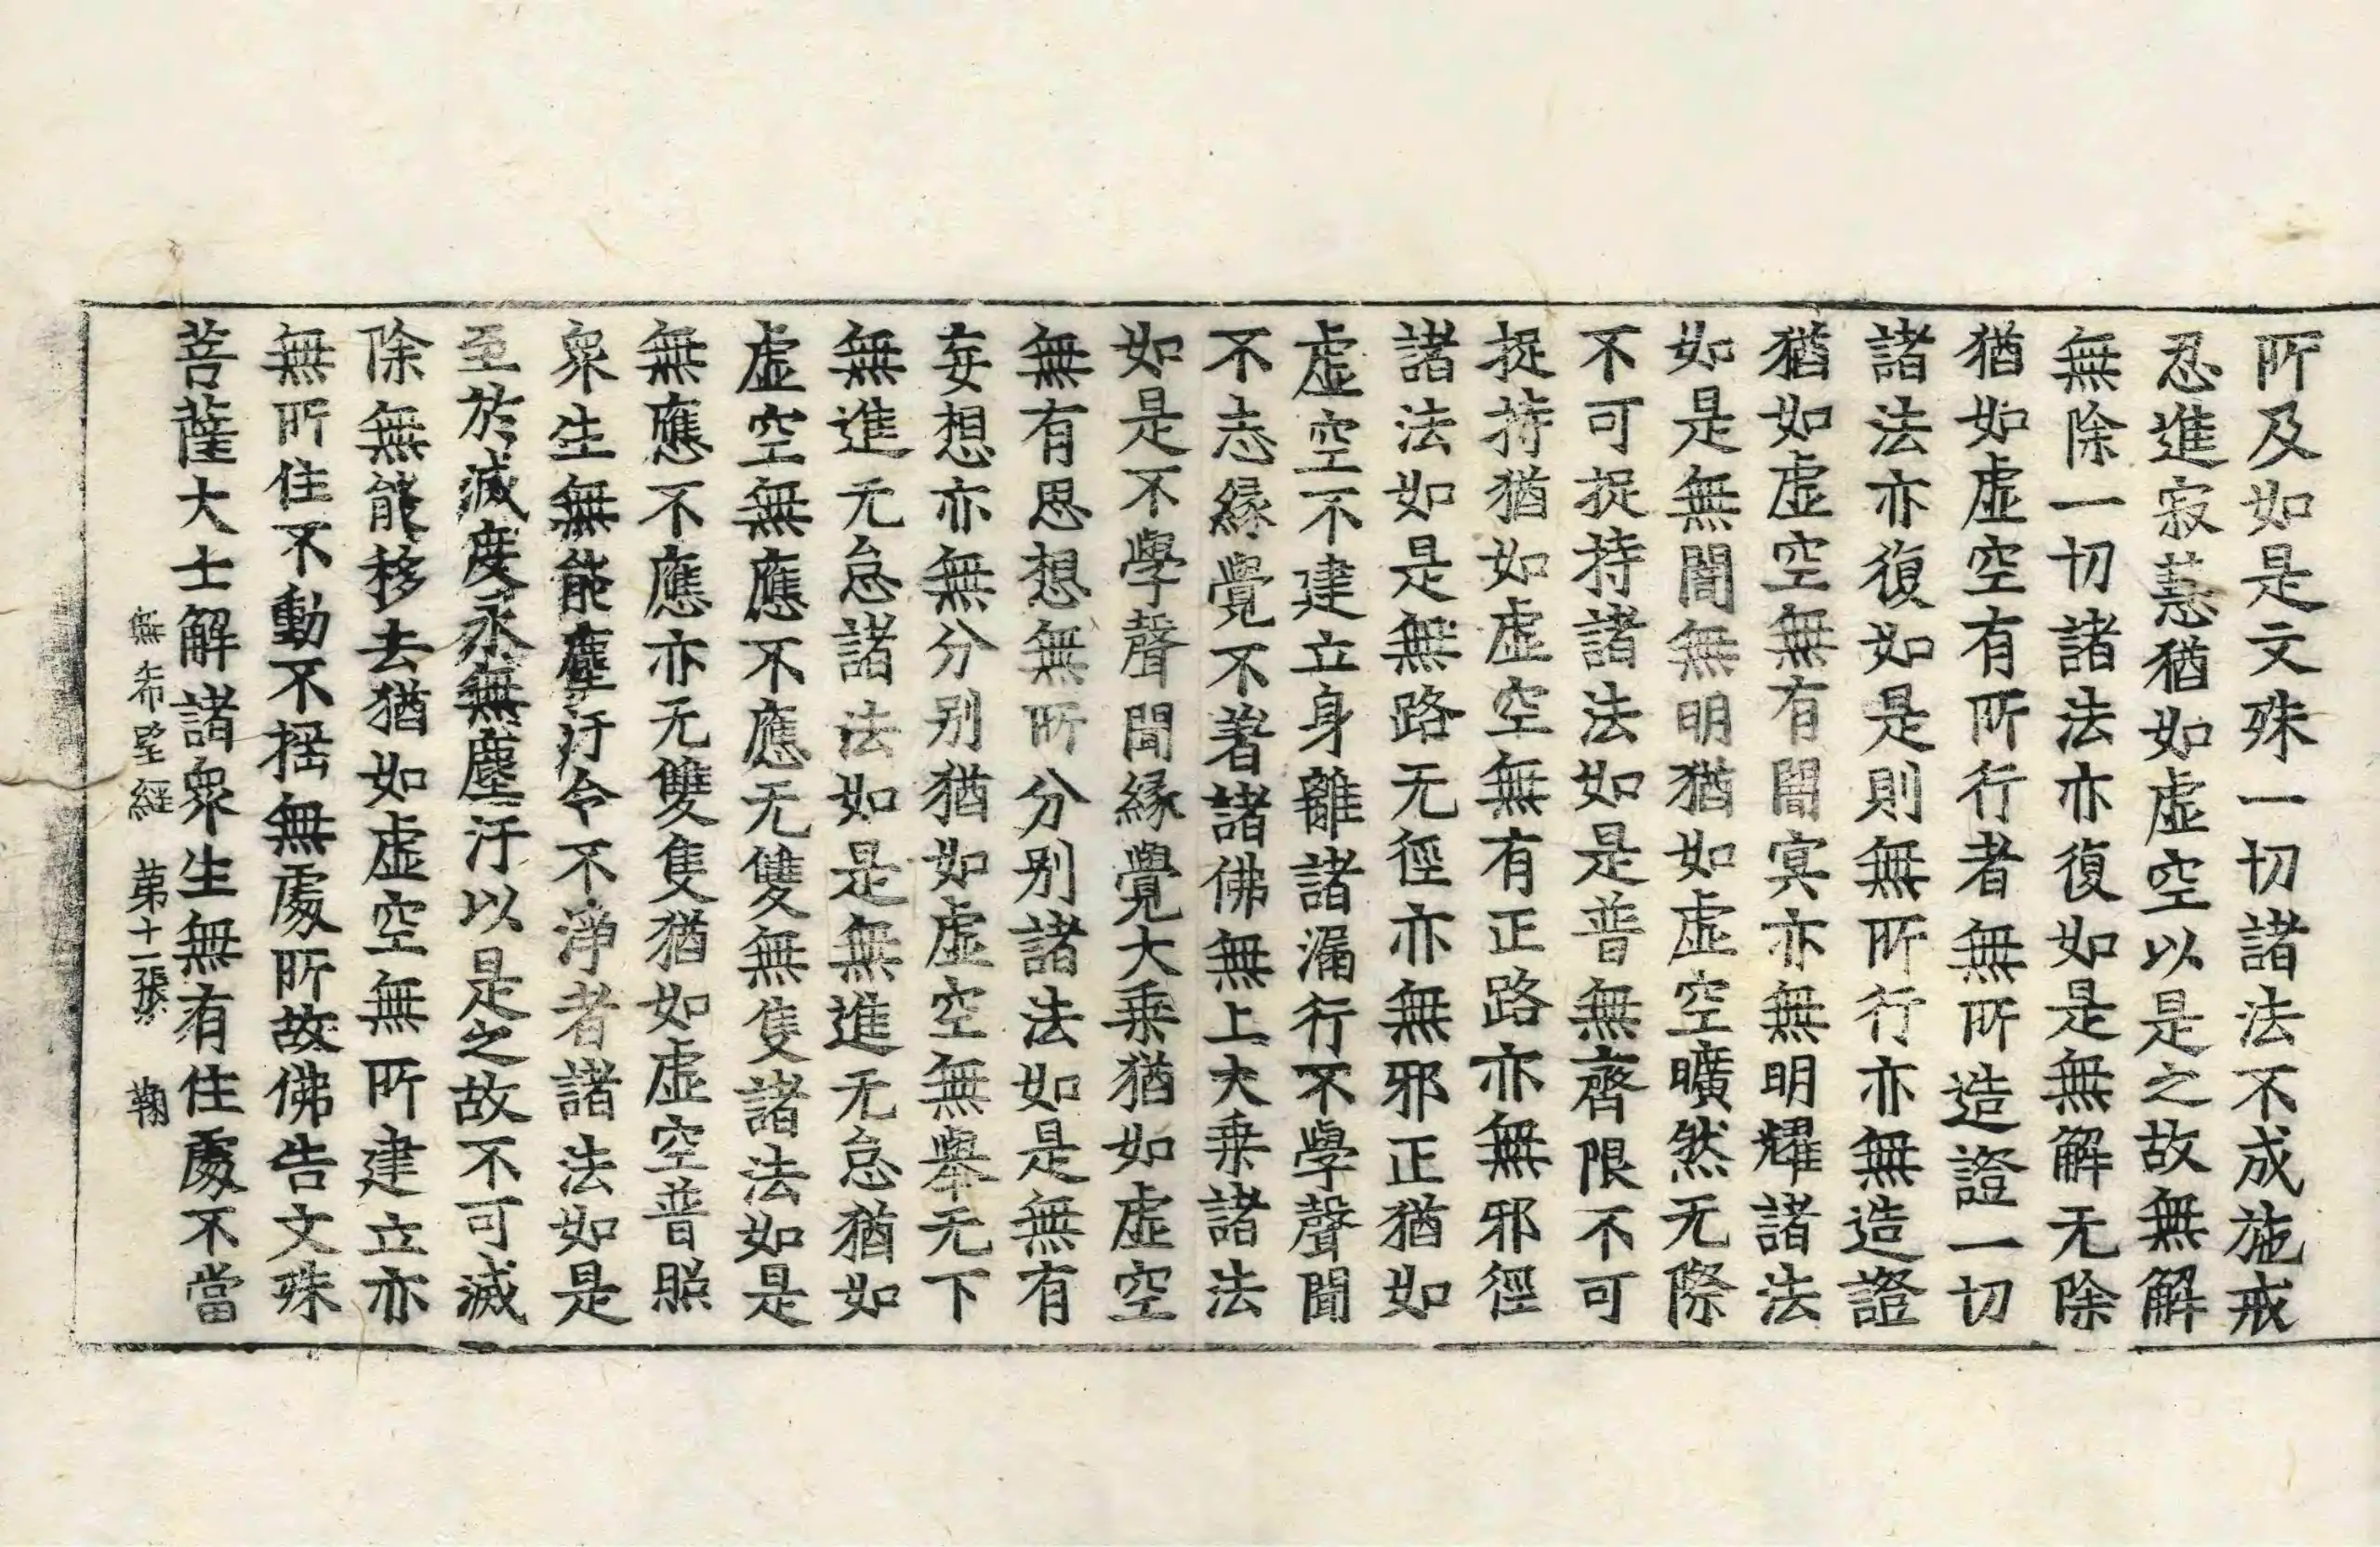 所及如是文殊一切諸法不成施戒
忍進寂慧猶如虛空以是之故無解
無除一切諸法亦復如是無解无除
猶如虛空有所行者無所造證一切
諸法亦復如是則無所行亦無造證
猶如虛空無有闇冥亦無明耀諸法
如是無闇無明猶如虛空曠然无際
不可捉持諸法如是普無齊限不可
捉持猶如虛空無有正路亦無邪徑
諸法如是無路无徑亦無邪正猶如
虛空不建立身離諸漏行不學聲聞
不志緣覺不著諸佛無上大乗諸法
如是不學聲聞緣覺大乗猶如虛空
無有思想無所分别諸法如是無有
妄想亦無分别猶如虛空無舉无下
無進无怠諸法如是無進无怠猶如
虛空無應不應无雙無隻諸法如是
無應不應亦无雙隻猶如虛空普照
衆生無能塵汙令不淨者諸法如是
至於滅度永無塵汙以是之故不可滅
除無能移去猶如虛空無所建立亦
無所住不動不揺無處所故佛告文殊
菩薩大士解諸衆生無有住處不當
無希望經 第十一張 鞠